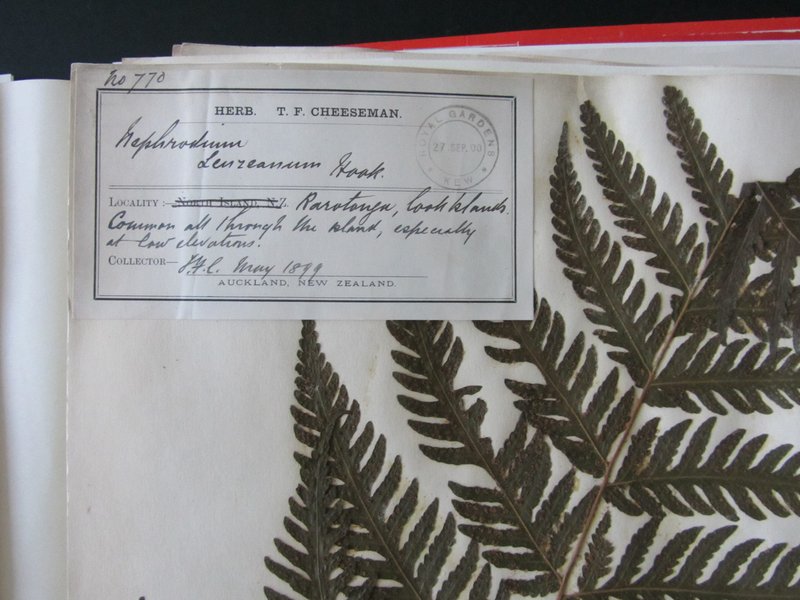 No 770
HERB. T. F. CHEESEMAN.
Nephrodium
Leuzeanum Hook.
ROYAL GARDENS
27. SEP. 00
KEW
LOCALITY:— NORTH ISLAND, N.Z. Rarotonga, Cook Islands.
Common all through the island, especially
at low elevations.
COLLECTOR— T.F.C. May 1899
AUCKLAND, NEW ZEALAND.